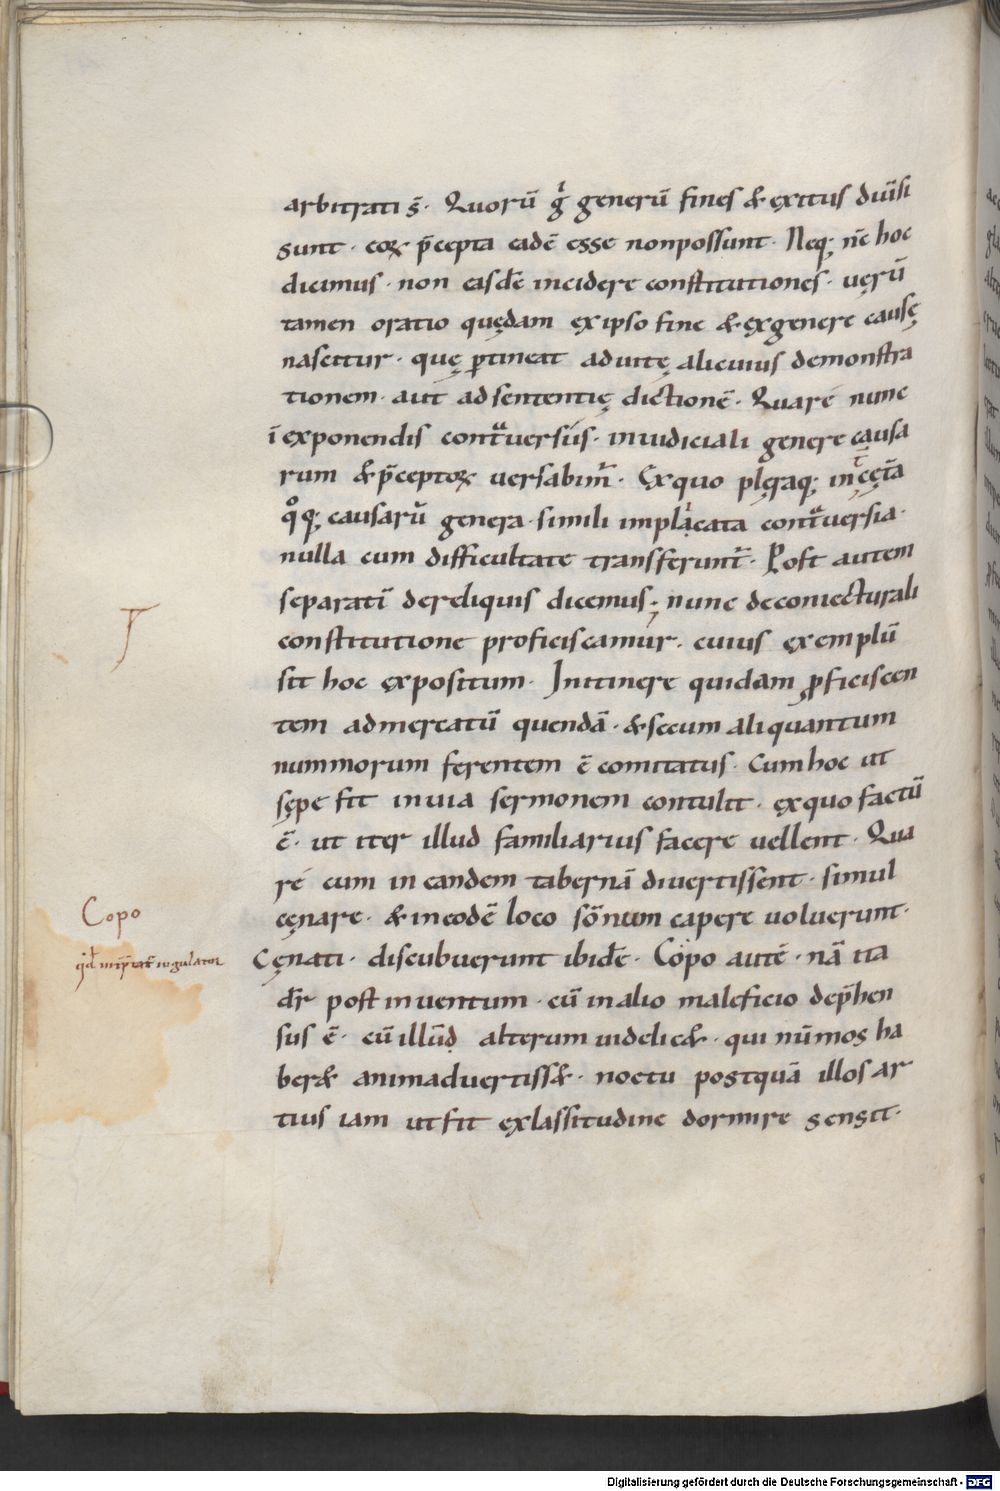 arbitrati s̄. Quorū gͥ generū fines & exitus diuīsi
sunt. eoꝝ p̄cepta eadē esse nonpossunt. Neq; nc̄ hoc
dicimus. non easdē incidere constitutiones. uerū
tamen oratio quędam ex ipso fine & exgenere causę
nascitur. quę ꝑtineat aduitę alicuius demonstra
tionem. aut ad sententię dictionē. Quare nunc
ī exponendis contͣuersiis. iniudiciali genere causa
rum & p̄ceptoꝝ uersabimr̄. Exquo plęraq; in cętā
qͦq; causarū genera. simili implicata contͣuersia.
nulla cum difficultate transferuntr̄. Post autem
separatī dereliquis dicemus; nunc deconiecturali
constitutione proficiscamur. cuius exemplū
sit hoc expositum. Initinere quidam ꝓficiscen
tem admercatū quendā. & secum aliquantum
nummorum ferentem ē comitatus. Cum hoc ut
sępe fit inuia sermonem contulit. exquo factū
ē. ut iter illud familiarius facere uellent. Qua
re cum in eandem tabernā divertissent. simul
cęnare. & ineodē loco sōnum capere uoluerunt.
Copo
Cęnati. discubuerunt ibidē. Copo autē. nā ita
qd̄ int̄p̄tat̄ iugulator
dr̄ post inuentum. cū inalio maleficio dep̄hen
sus ē. cū illūd alterum uidelic&. qui nūmos ha
ber& animaduertiss&. noctu postquā illos ar
tius iam utfit exlassitudine dormire sensit.
Digitalisierung gefördert durch die Deutsche Forschungsgemeinschaft - DFG